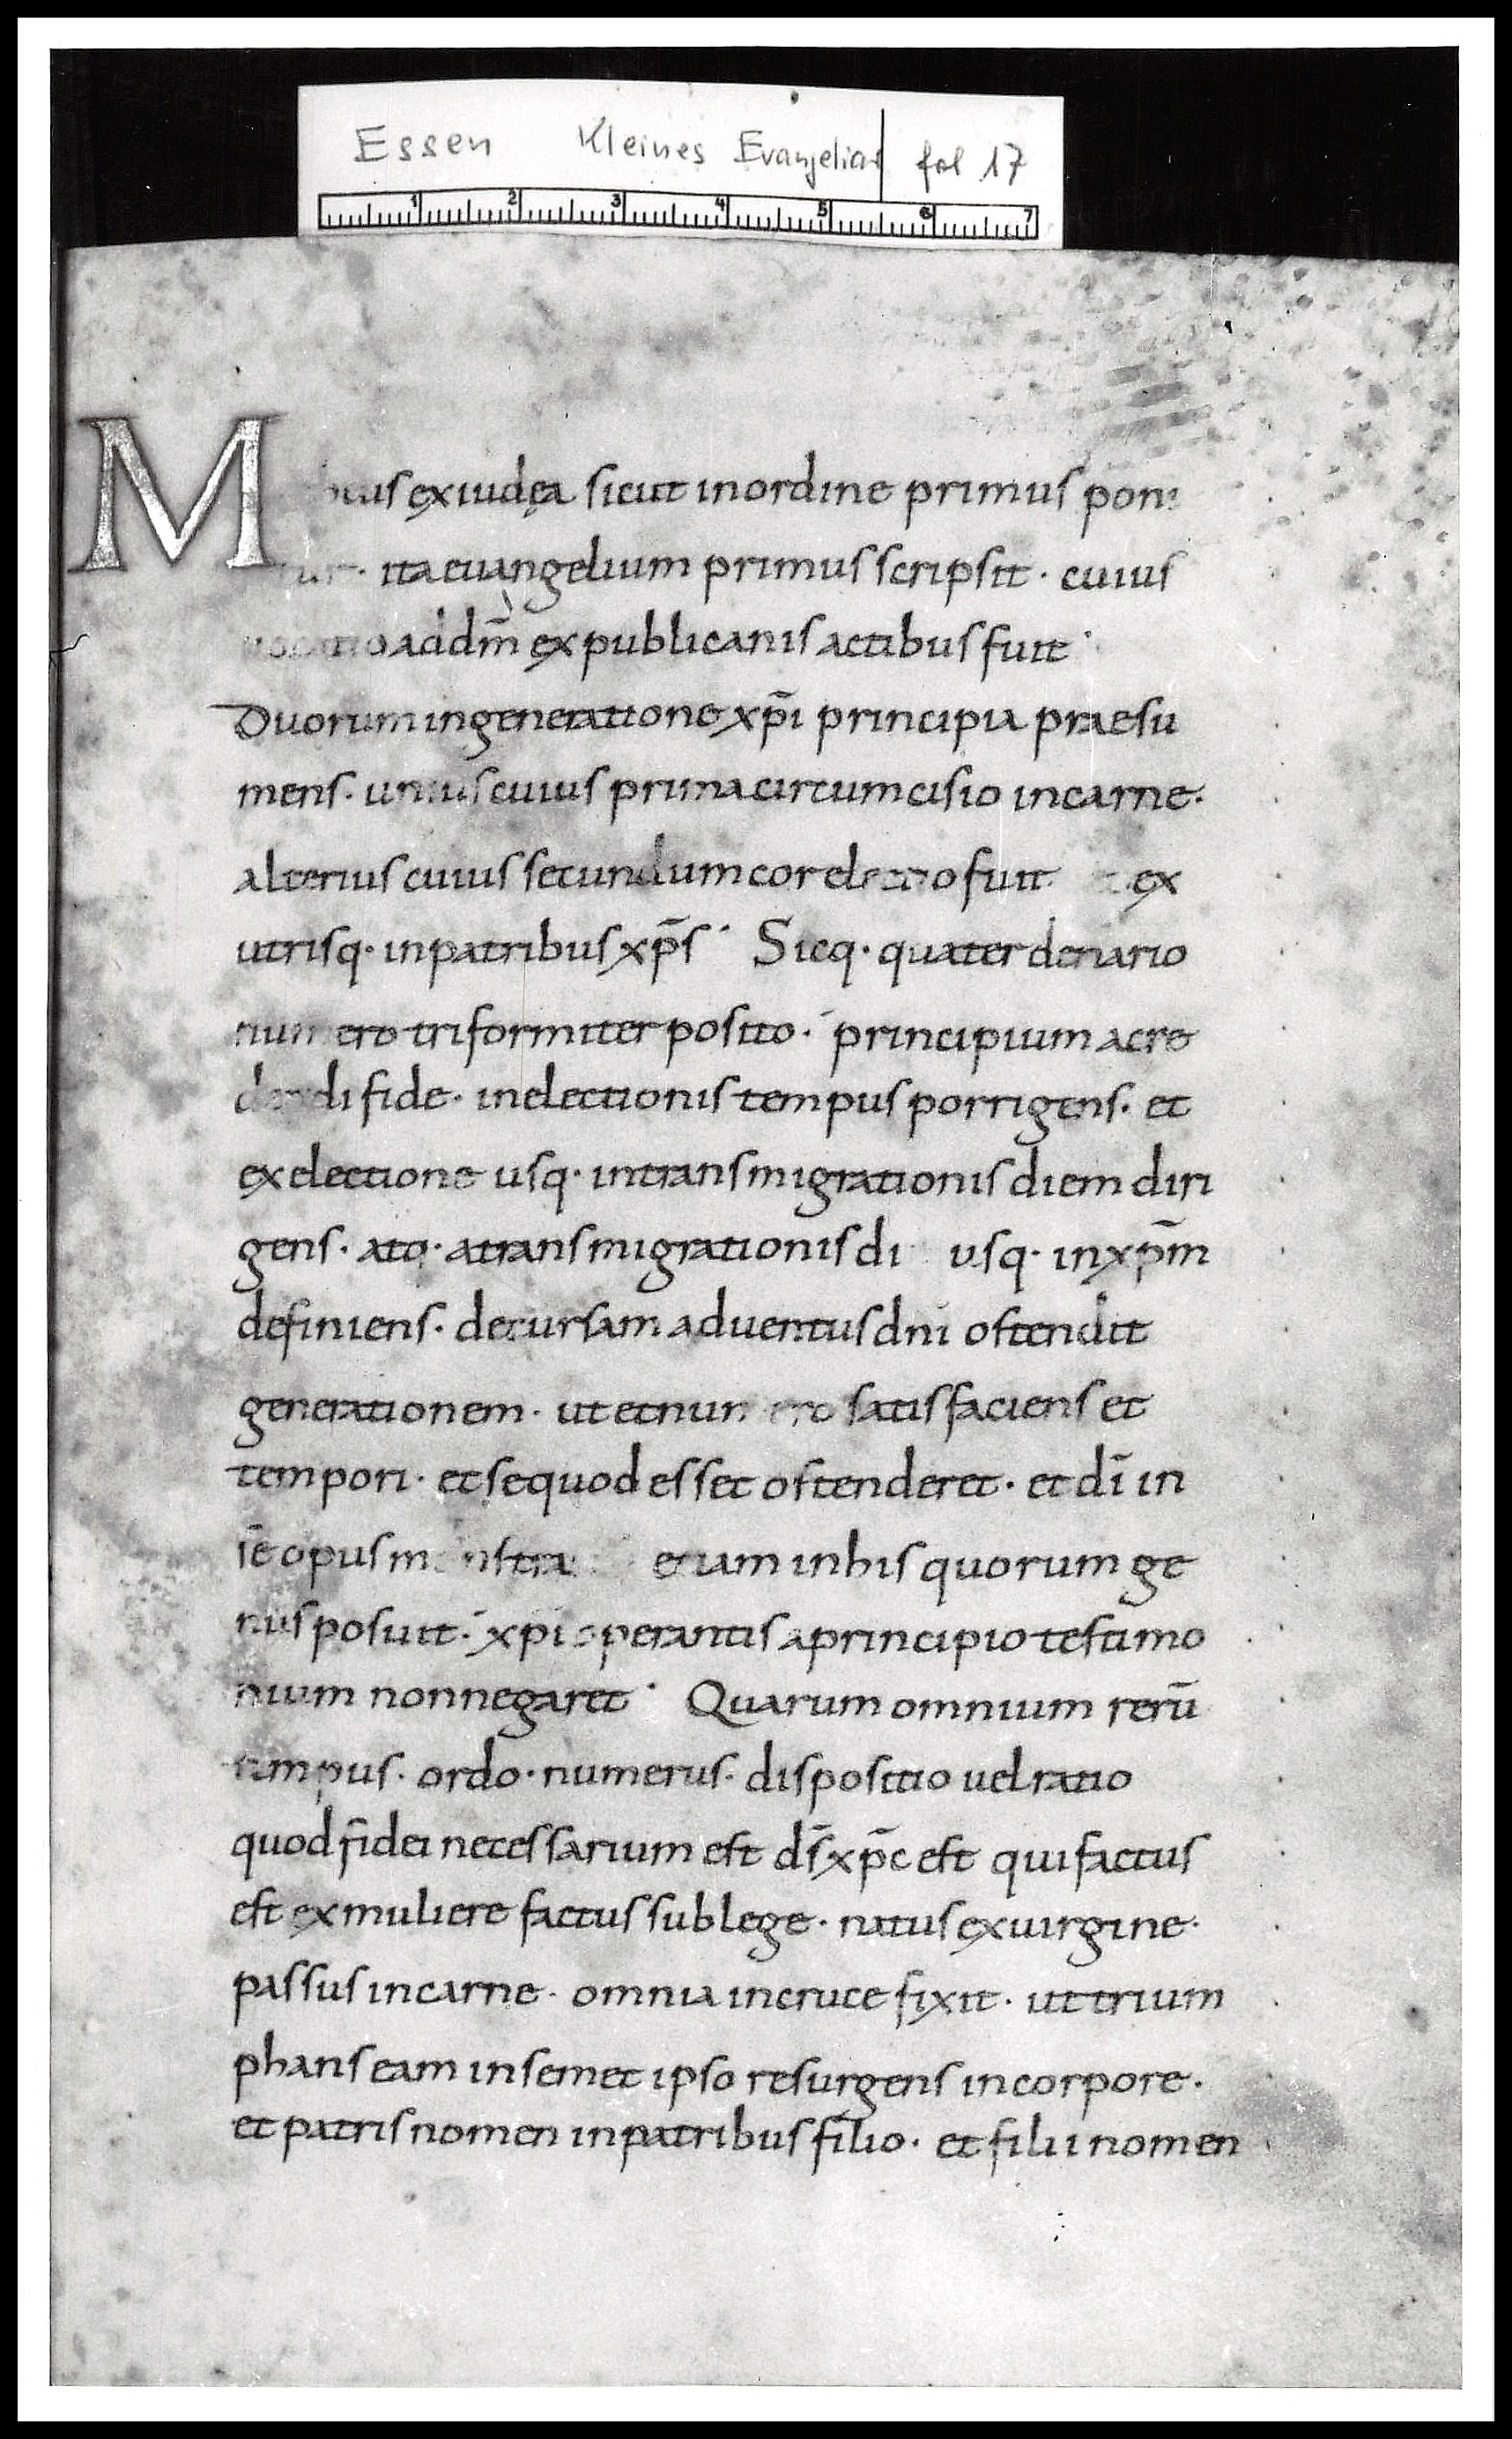 Essen Kleines Evangeliar fol 17
1 2 3 4 5 6 7
M
ex iudęa sicut in ordine primus
ita euangelium primus scripsit · cuius
ad dm̄ ex publicanis actibus fuit ·
Duorum in generatione xp̄i principia praesu
mens · unius cuius prima circumcisio in carne ·
alterius cuius secundum cor electio fuit ex
utrisq· in patribus xp̄s · Sicq· quaterdenario
numero triformiter posito · principium a cre
dendi fide · in electionis tempus porrigens · et
ex electione usq· in transmigrationis diem diri
gens · atq· a transmigrationis di usq· in xp̄m
definiens · decursam aduentus dn̄i ostendit
generationem · ut et numero satisfaciens et
tempori · et se quod esset ostenderet · et dī in
sē opus etiam in his quorum ge
nus posuit · xpi operantis a principio testimo
nium non negaret · Quarum omnium rerū
tempus · ordo · numerus · dispositio uel ratio
quod fidei necessarium est ds̄ xp̄c est qui factus
est ex muliere factus sub lege · natus ex uirgine ·
passus in carne · omnia in cruce fixit · ut trium
phans eam in semet ipso resurgens in corpore ·
et patris nomen in patribus filio · et filii nomen